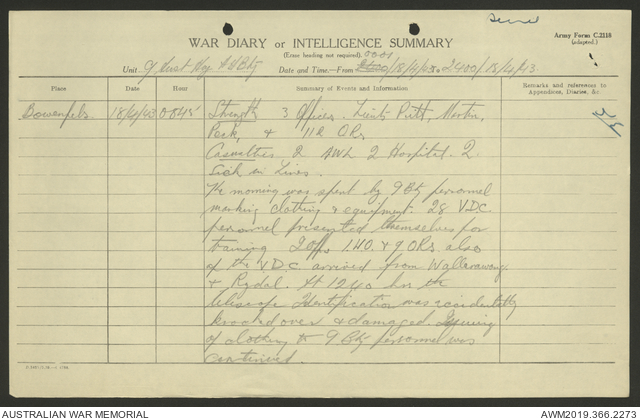 Army Form C.2118
(adapted.)
WAR DIARY or INTELLIGENCE SUMMARY
(Erase heading not required).
Unit 9 Aust Hy A A Bty Date and Time—From 0001/18/4/43 to 2400/18/4/43
Place Date Hour Summary of Events and Information Remarks and references to Appendices, Diaries, &c
Bowenfels. 18/4/43 0845 Strength 3 Officers Lieuts Putt, Morton,
Peck, & 112 ORs.
Casualties 2 AWL 2 Hospital. 2
Sick in Lines.
The morning was spent by 9 Bty personnel
marking clothing & equipment. 28 V.D.C.
personnel presented themselves for
training 2 offrs 1 I.O. & 9 ORs. also
of the V.D.C arrived from Wallerawang
& Rydal. At 1240 hrs the
telescope Identification was accidently
knocked over & damaged. Issuing
of clothing to 9 Bty personnel was
continued.
AUSTRALIAN WAR MEMORIAL AWM2019.366.2273